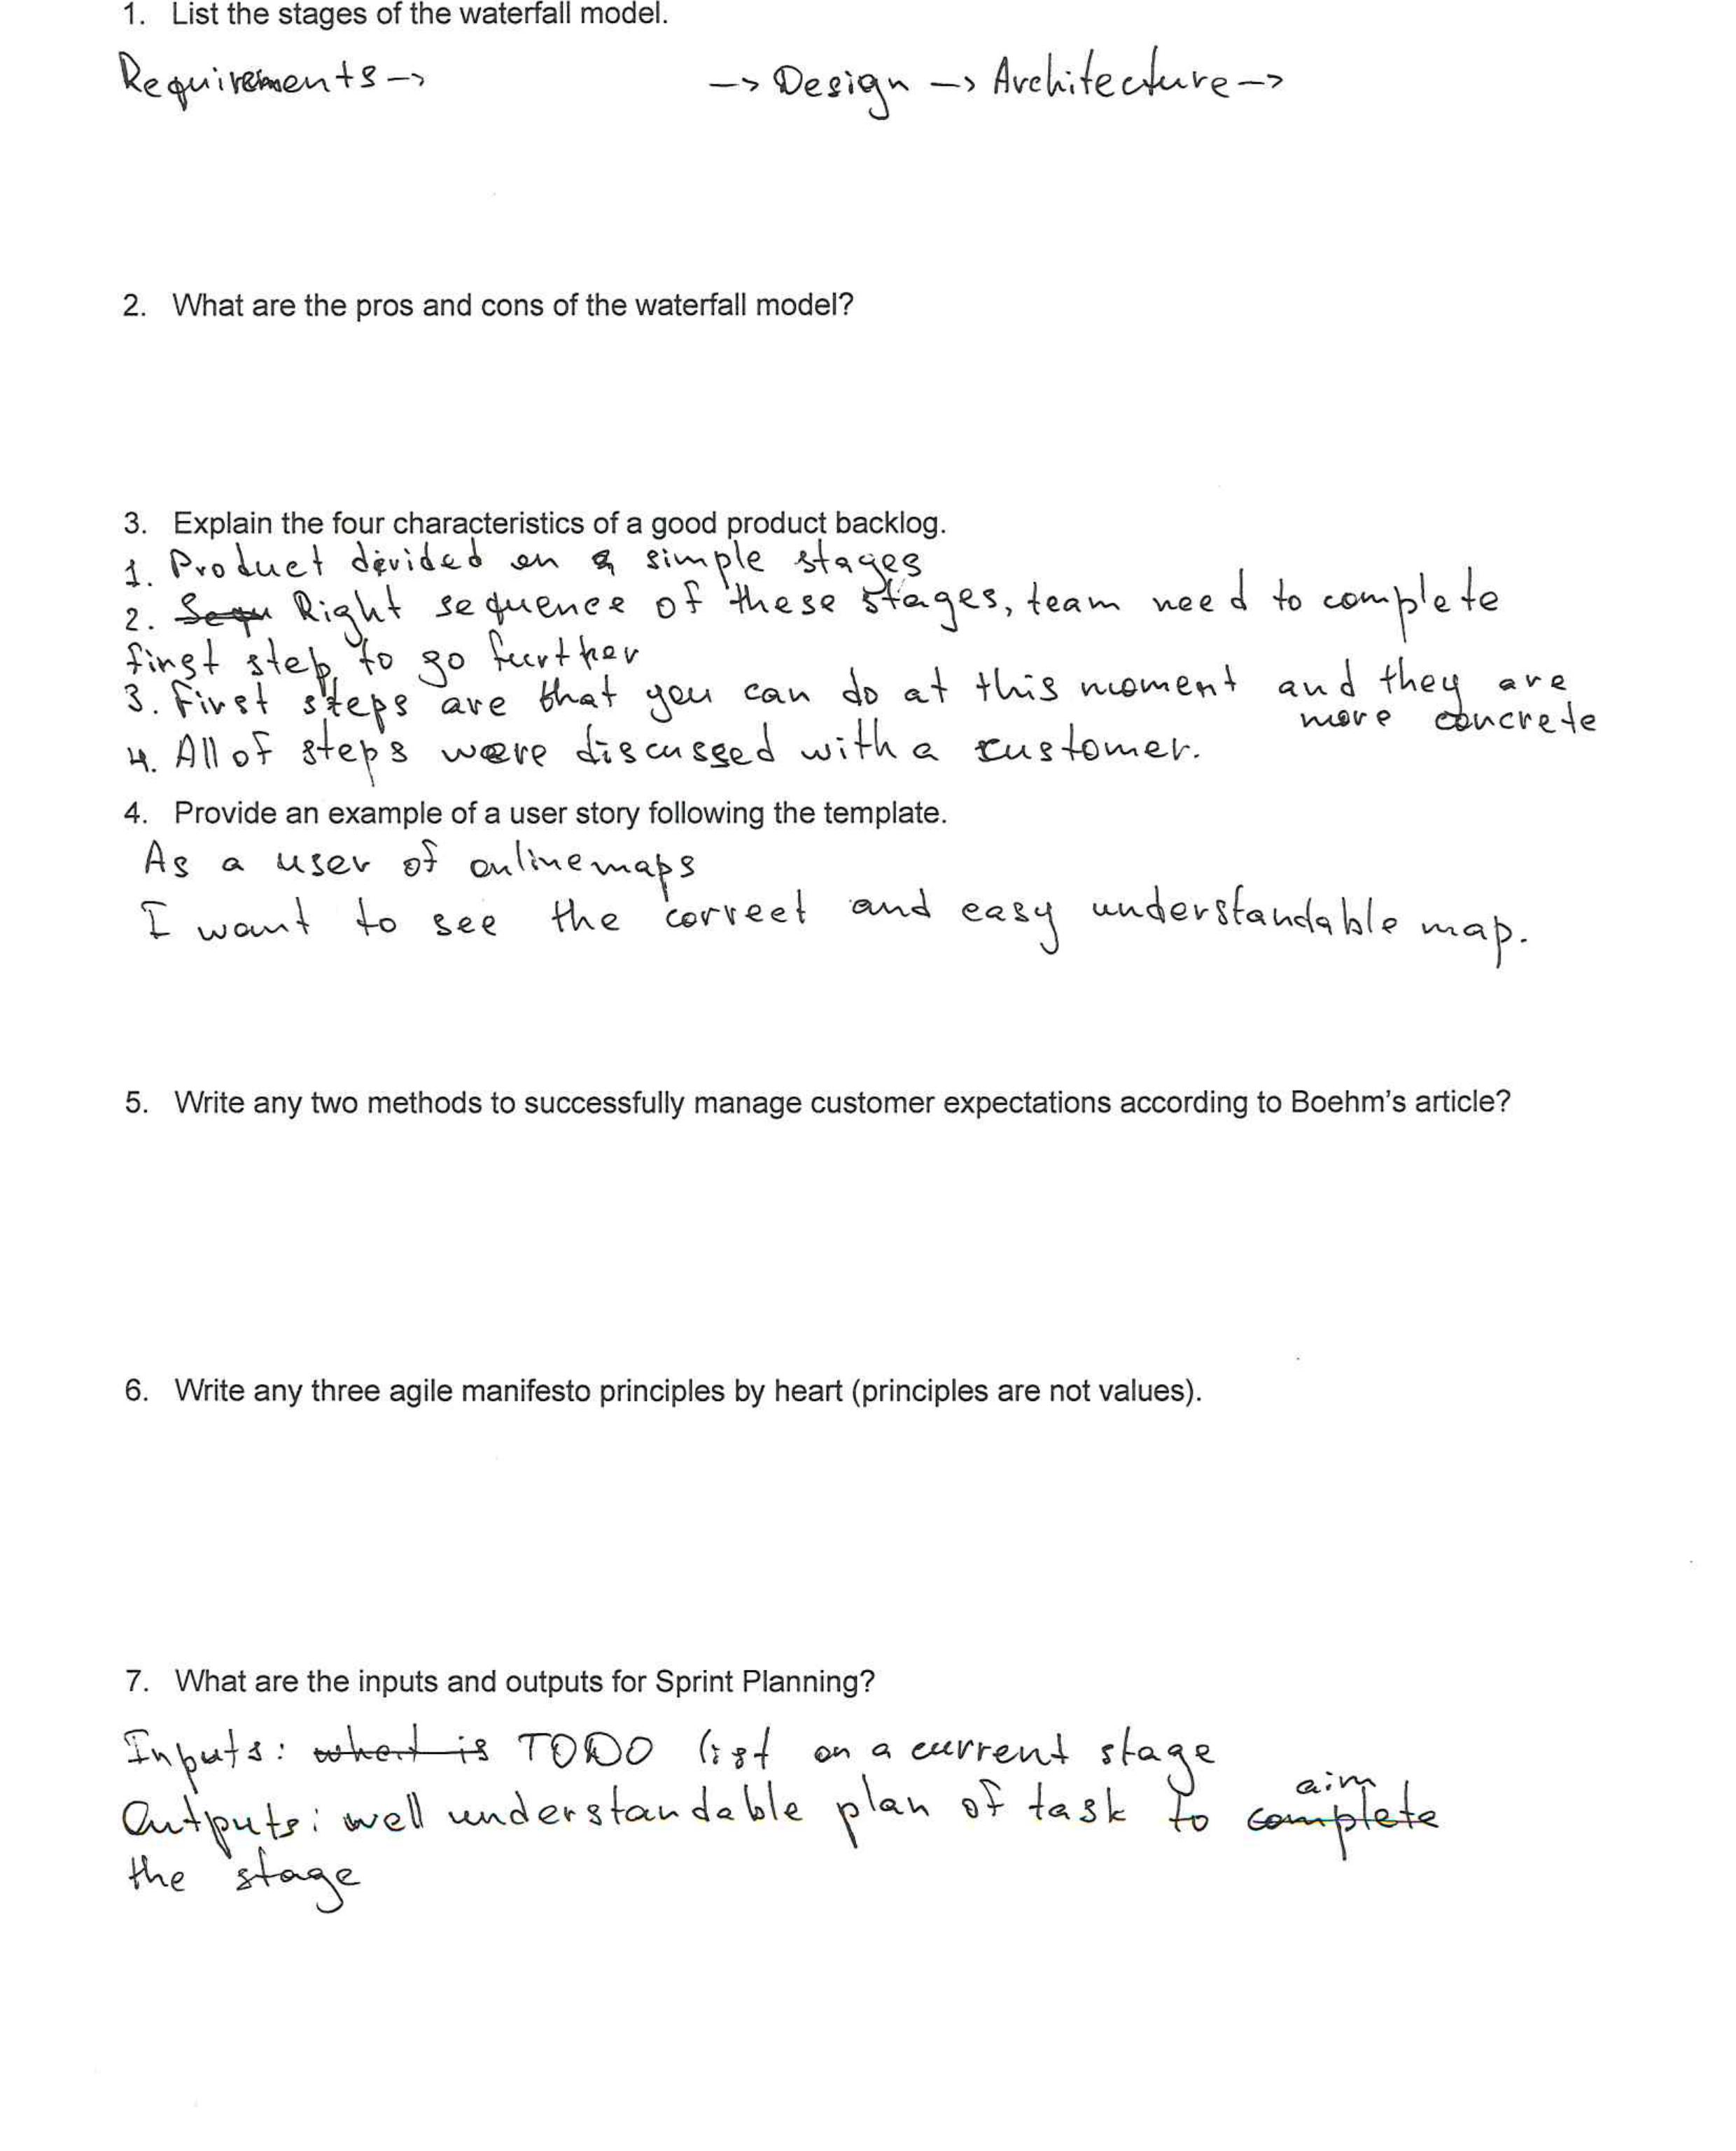 1. List the stages of the waterfall model.
Requirements -> -> Design -> Architecture ->
2. What are the pros and cons of the waterfall model?
3. Explain the four characteristics of a good product backlog.
1. Product divided on a simple stages
2. Sequ Right sequence of these stages, team need to complete
first step, to go further
3. First steps are that you can do at this moment and they are
more concrete
4. All of steps were discussed with a customer.
4. Provide an example of a user story following the template.
As a user of online maps
I want to see the correct and easy understandable map.
5. Write any two methods to successfully manage customer expectations according to Boehm's article?
6. Write any three agile manifesto principles by heart (principles are not values).
7. What are the inputs and outputs for Sprint Planning?
Inputs: what is TODO list on a current stage
aim
Outputs: well understandable plan of task to complete
the stage